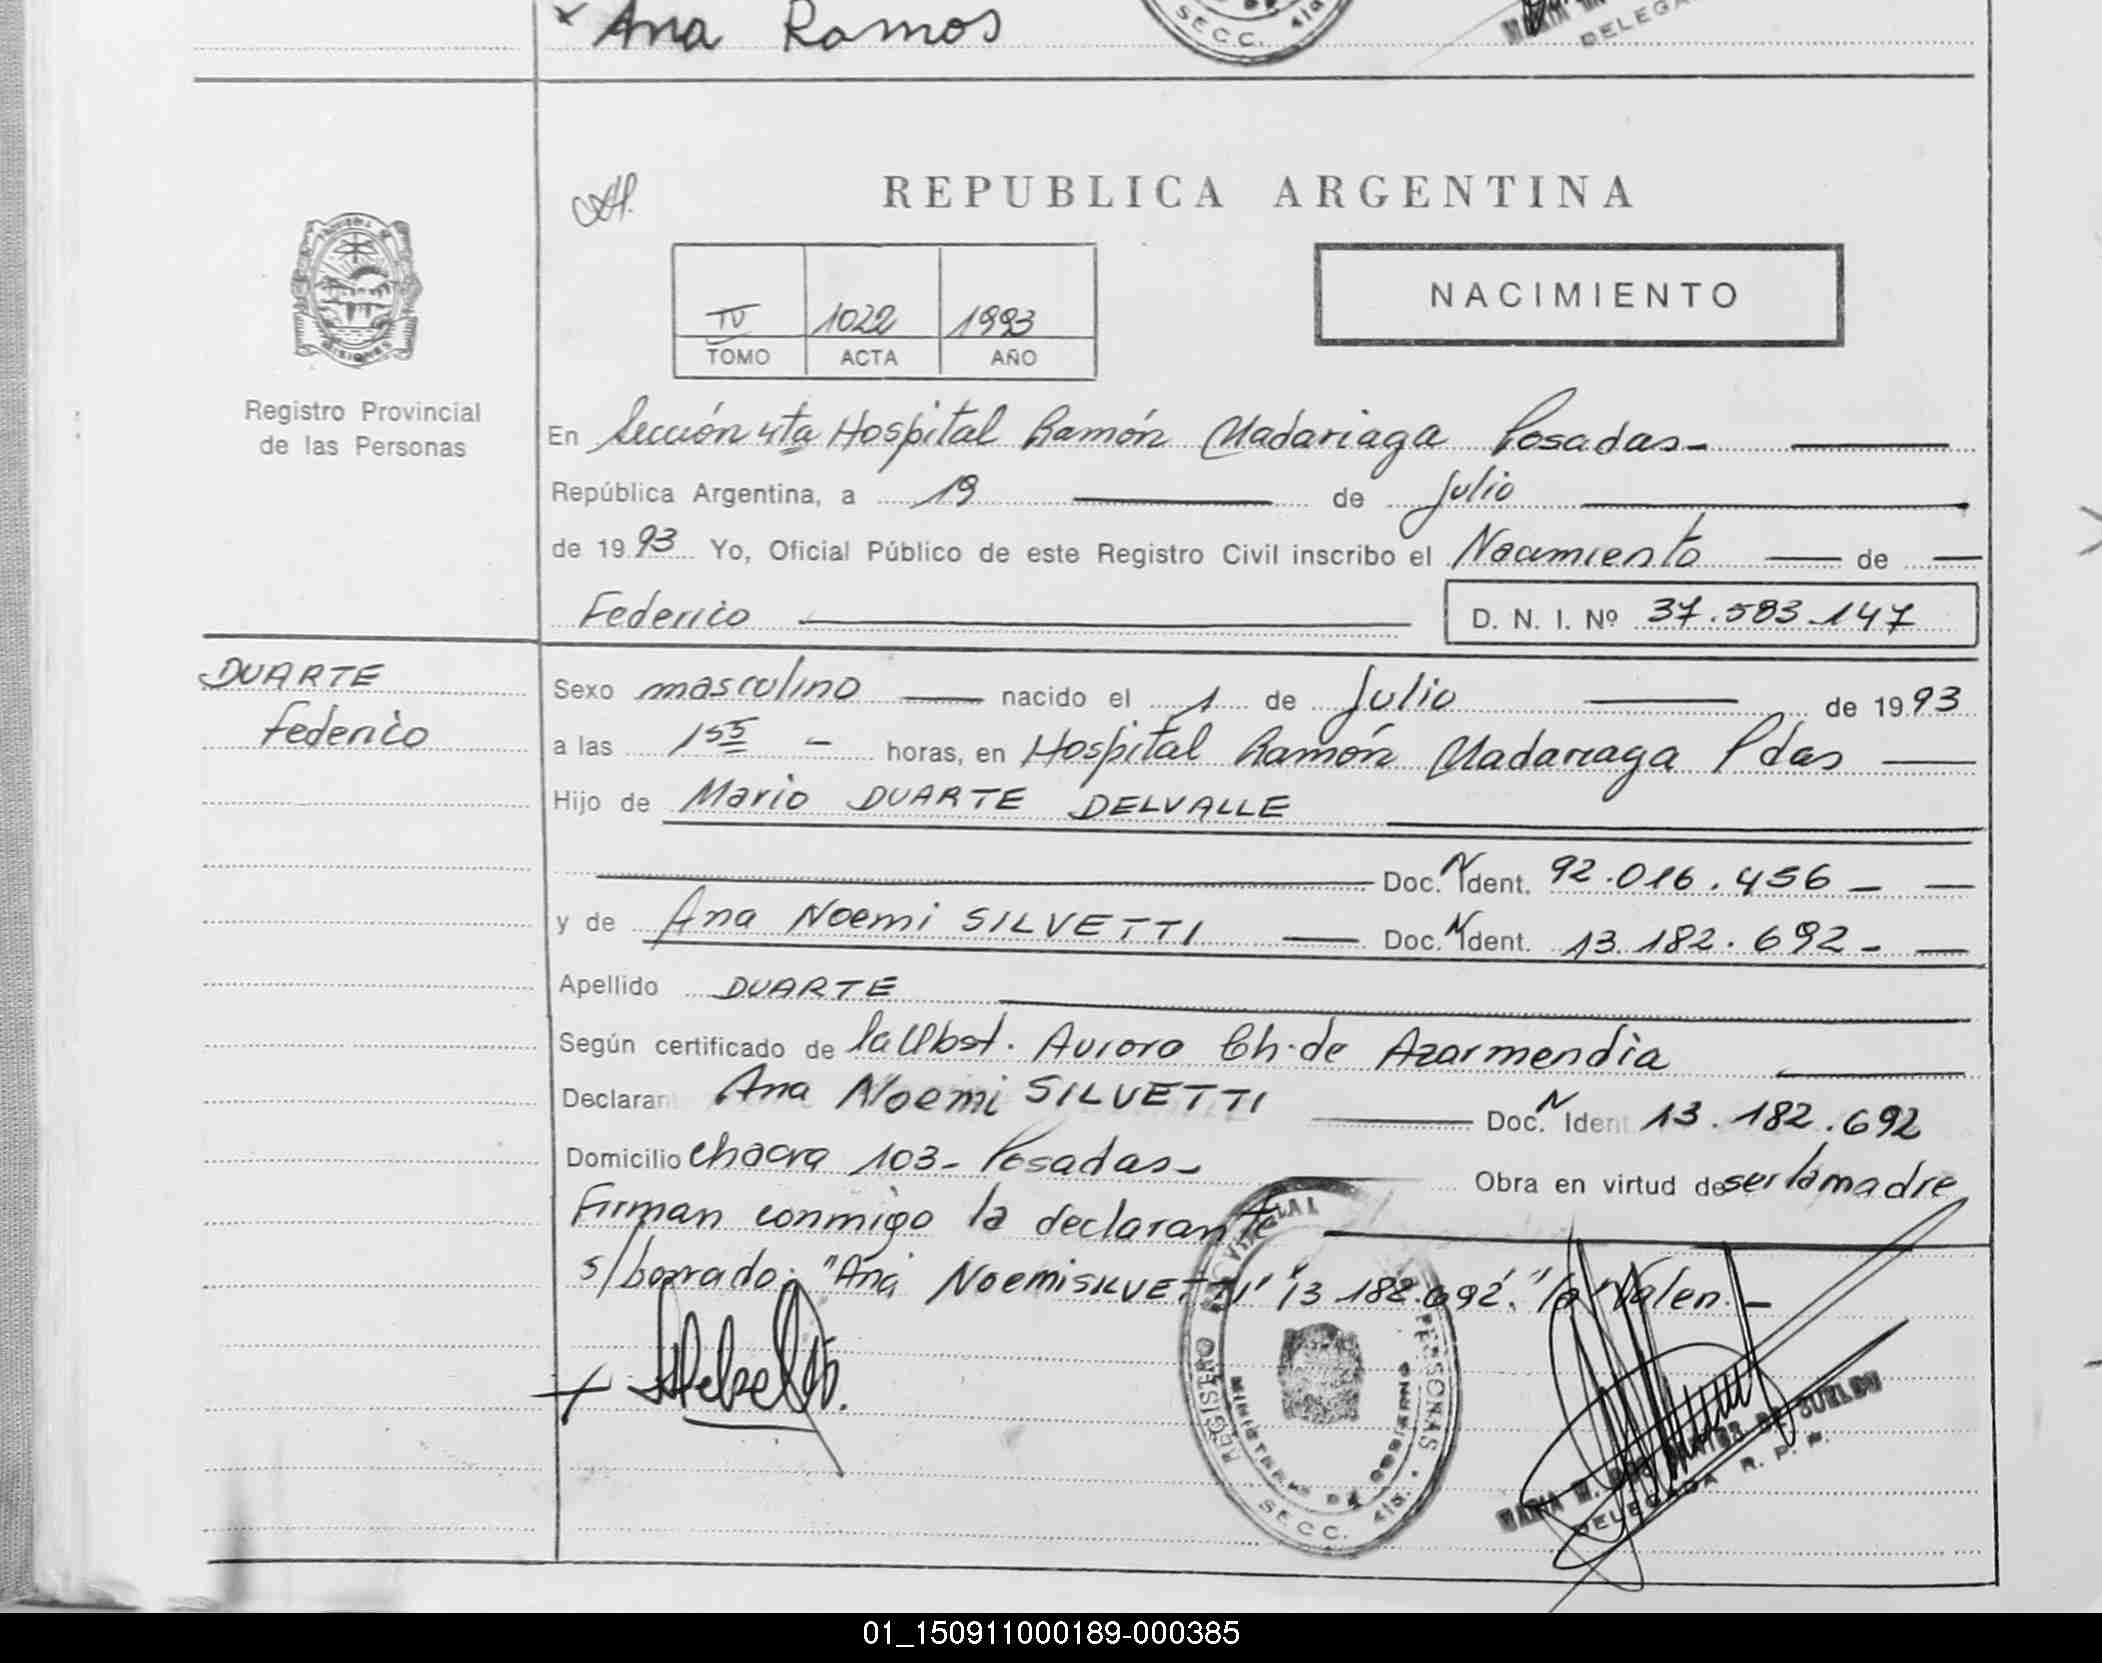 Ana Ramos
SECC. 4ta
DELEGA
REPUBLICA ARGENTINA
NACIMIENTO
IV 1022 1993
TOMO ACTA AÑO
Registro Provincial
de las Personas
MISIONES
En Sección 4ta Hospital Ramón Madariaga Posadas-
República Argentina, a 19 de Julio
de 1993 Yo, Oficial Público de este Registro Civil inscribo el Nacimiento de
Federico D. N. I. Nº 37.583.147
DUARTE
Federico
Sexo masculino nacido el 1 de Julio de 1993
a las 1 55 - horas, en Hospital Ramón Madariaga Pdas
Hijo de Mario DUARTE DELVALLE
Doc. N Ident. 92.016.456 -
y de Ana Noemi SILVETTI Doc. N Ident. 13.182.692-
Apellido DUARTE
Según certificado de la Obst. Aurora Ch. de Azarmendia
Declaran Ana Noemi SILVETTI Doc. N Ident 13.182.692
Domicilio chacra 103- Posadas- Obra en virtud de ser la madre
Firman conmigo la declarante
s/borrado: "Ana Noemi SILVETTI" "13 182.692". "la" Valen.-
REGISTRO PROVINCIAL PERSONAS
MINISTERIO DE GOBIERNO
SECC. 4ta.
MARIA M. DE CUELLO
DELEGADA R. P. P.
01_150911000189-000385